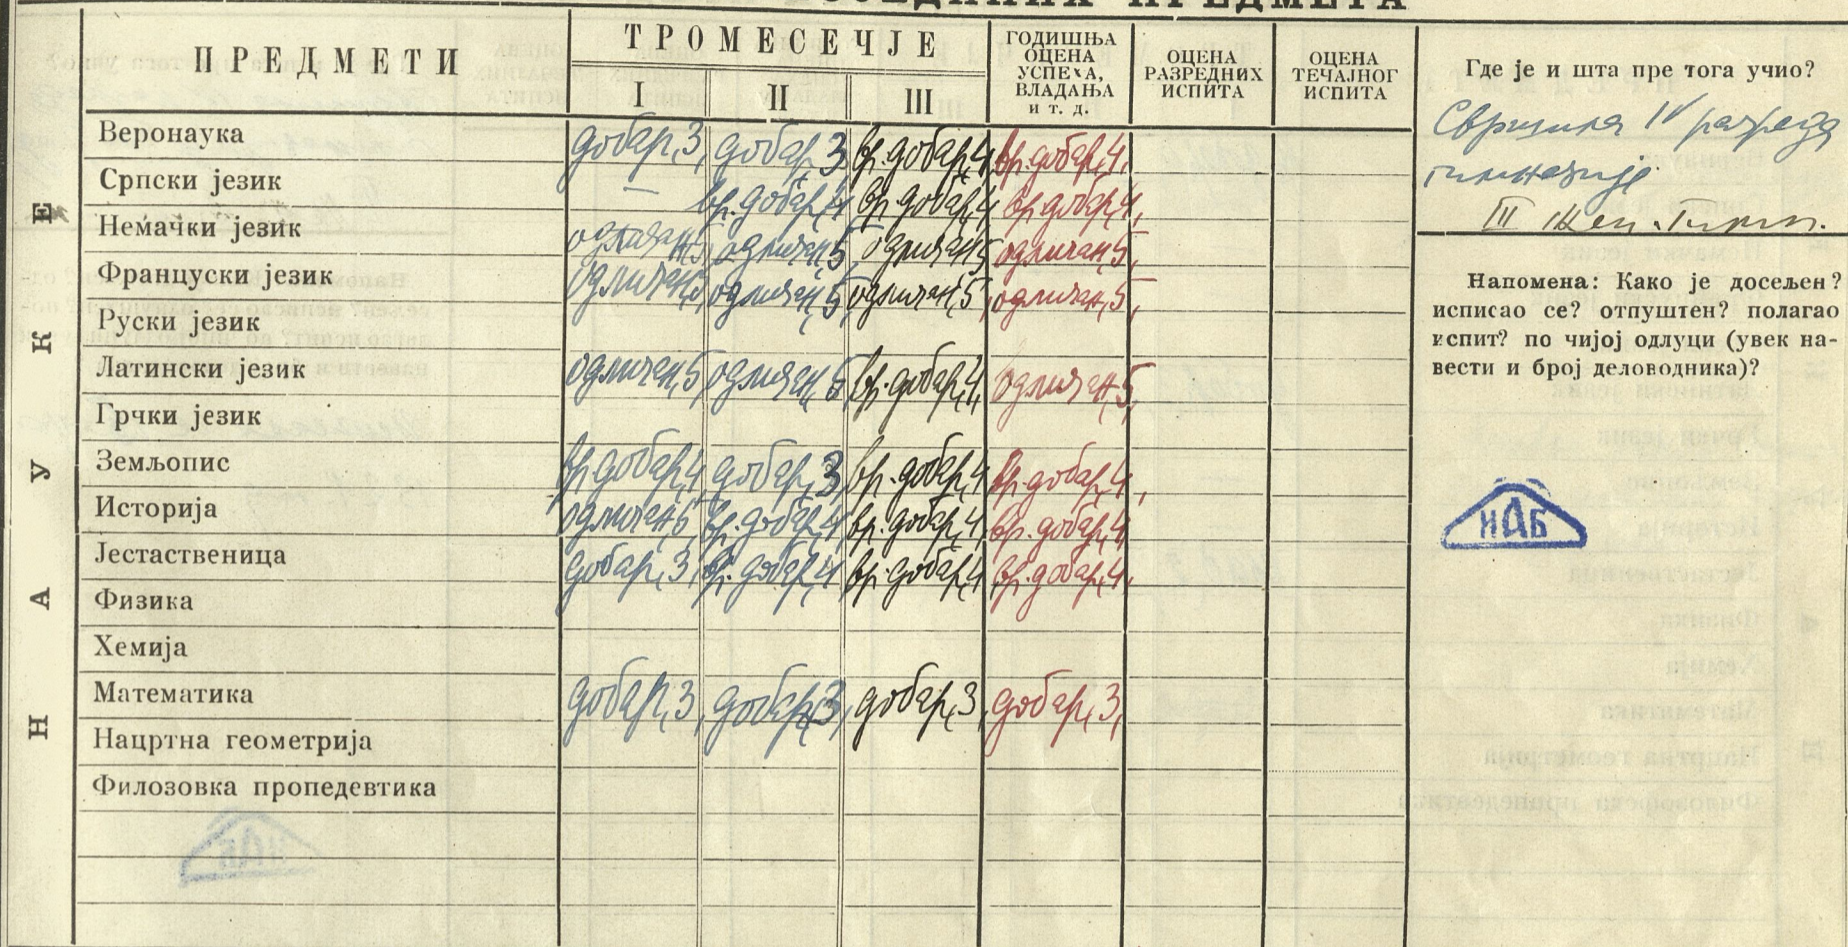 ПРЕДМЕТА
ПРЕДМЕТИ
ТРОМЕСЕЧЈЕ
I II III
ГОДИШЊА
ОЦЕНА
УСПЕХА,
ВЛАДАЊА
И Т. Д.
ОЦЕНА
РАЗРЕДНИХ
ИСПИТА
ОЦЕНА
ТЕЧАЈНОГ
ИСПИТА
НАУКЕ
Веронаука добар, 3, добар, 3 вр. добар, 4 вр. добар, 4,
Српски језик — вр. добар, 4 вр. добар, 4 вр. добар, 4,
Немачки језик одличан, 5 одличан, 5 одличан, 5 одличан, 5,
Француски језик одличан, 5 одличан, 5, одличан, 5, одличан, 5,
Руски језик
Латински језик одличан, 5 одличан, 5 вр. добар, 4, одличан, 5,
Грчки језик
Земљопис вр. добар, 4 добар, 3 вр. добар, 4 вр. добар, 4,
Историја одличан, 5, вр. добар, 4 вр. добар, 4 вр. добар, 4
Јестаственица добар, 3, вр. добар, 4 вр. добар, 4 вр. добар, 4,
Физика
Хемија
Математика добар, 3, добар, 3, добар, 3, добар, 3,
Нацртна геометрија
Филозовка пропедевтика
Где је и шта пре тога учио?
Свршила IV разреда
гимназије
III жен. гимн.
Напомена: Како је досељен?
исписао се? отпуштен? полагао
испит? по чијој одлуци (увек на-
вести и број деловодника)?
ИАБ